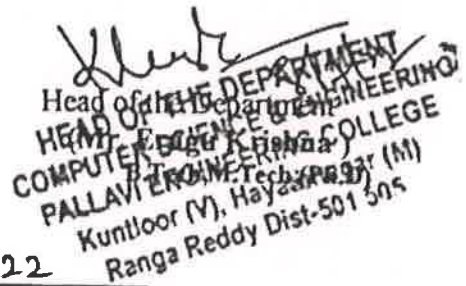 Head of the Department
(Mr. Krishna)
B.Tech, M.Tech,
HEAD OF THE DEPARTMENT
COMPUTER SCIENCE & ENGINEERING
PALLAVI ENGINEERING COLLEGE
Kuntloor (V), Hayathnagar (M)
Ranga Reddy Dist-501 505
22